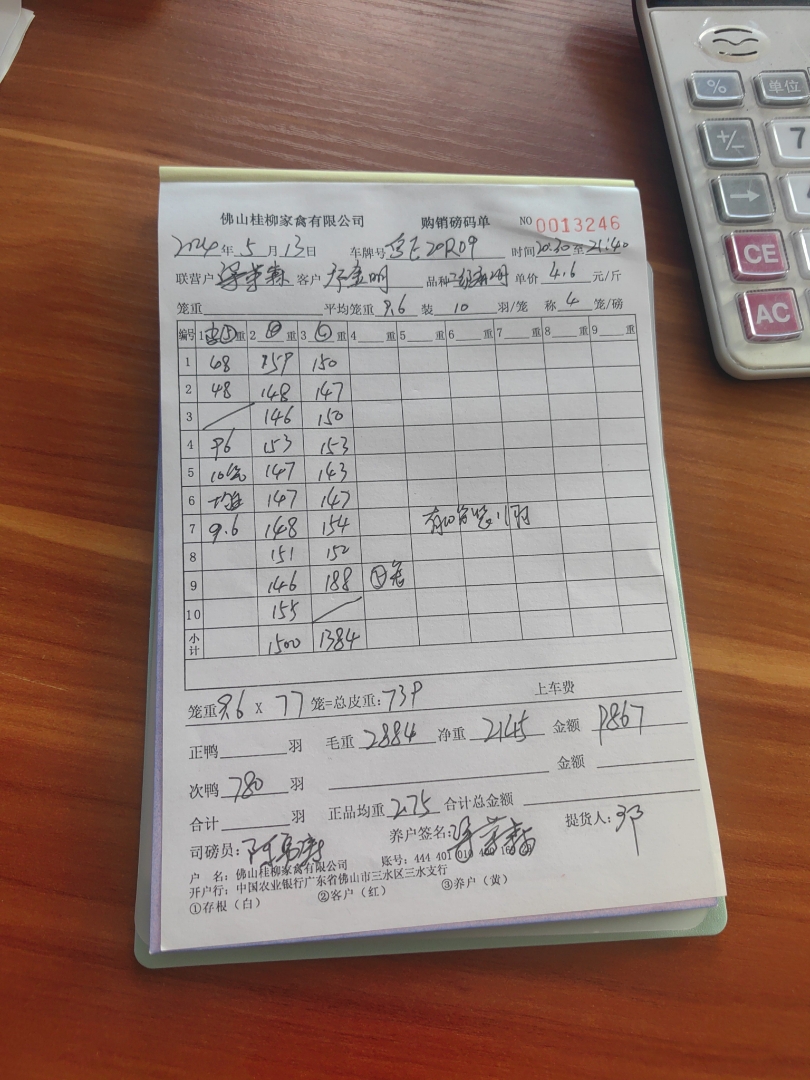 % 单位
+/- 7
→
CE
AC
佛山桂柳家禽有限公司 购销磅码单 NO 0013246
2024年 5 月 13 日 车牌号 20R09 时间 20:30 至 21:40
联营户 客户 品种 单价 4.6 元/斤
笼重 平均笼重 9.6 装 10 羽/笼 称 4 笼/磅
编号 1 重 2 重 3 重 4 重 5 重 6 重 7 重 8 重 9 重
1 48 159 150
2 48 148 147
3 146 150
4 96 153 153
5 10笼 147 143
6 147 147
7 9.6 148 154
8 151 152
9 146 188 ⑤笼
10 155
小计 1500 1384
笼重 9.6 X 77 笼=总皮重: 739 上车费
正鸭 羽 毛重 2884 净重 2145 金额 9867
次鸭 780 羽 金额
合计 羽 正品均重 2.75 合计总金额
司磅员: 养户签名: 提货人: 邓
户 名: 佛山桂柳家禽有限公司 账号: 444 401 010 400
开户行: 中国农业银行广东省佛山市三水区三水支行
①存根（白） ②客户（红） ③养户（黄）